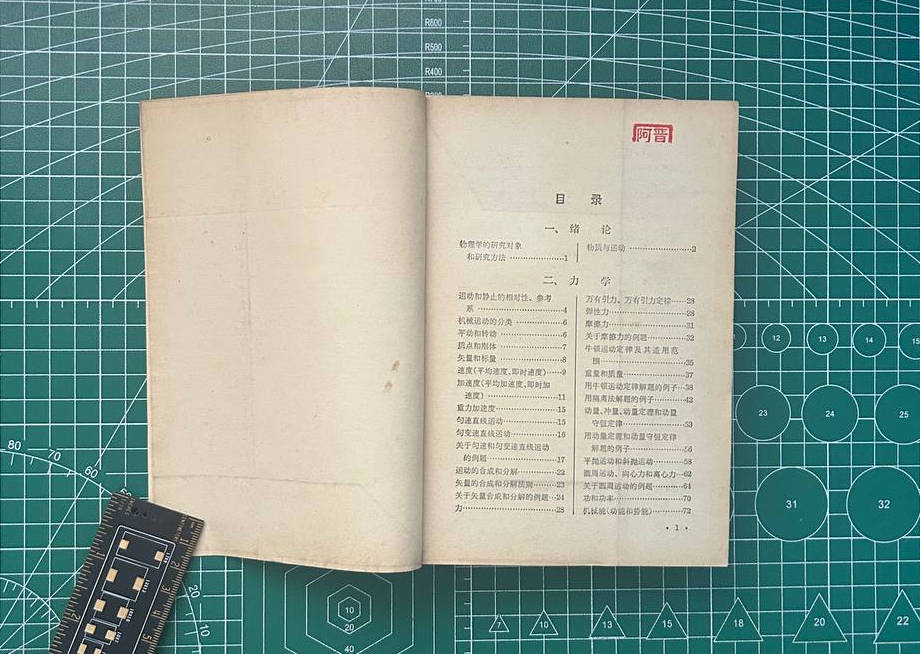 R600
R500
R400
阿晋
目 录
一、绪 论
物理学的研究对象
和研究方法……………1
物质与运动……………2
二、力 学
运动和静止的相对性、参考
系……………4
机械运动的分类……………6
平动和转动……………6
质点和刚体……………7
矢量和标量……………8
速度(平均速度、即时速度)……9
加速度(平均加速度、即时加
速度)……………11
重力加速度……………15
匀速直线运动……………15
匀变速直线运动……………16
关于匀速和匀变速直线运动
的例题……………17
运动的合成和分解……………22
矢量的合成和分解法则……23
关于矢量合成和分解的例题…24
力……………28
万有引力、万有引力定律……28
弹性力……………28
摩擦力……………31
关于摩擦力的例题……………32
牛顿运动定律及其适用范
围……………35
重量和质量……………37
用牛顿运动定律解题的例子…38
用隔离法解题的例子……………42
动量、冲量、动量定理和动量
守恒定律……………53
用动量定理和动量守恒定律
解题的例子……………56
平抛运动和斜抛运动……………58
圆周运动、向心力和离心力…62
关于圆周运动的例题……………64
功和功率……………70
机械能(动能和势能)……………72
• 1 •
12
13
14
23
24
25
31
32
80
70
60
20
10
10
20
40
7
10
13
15
18
20
22